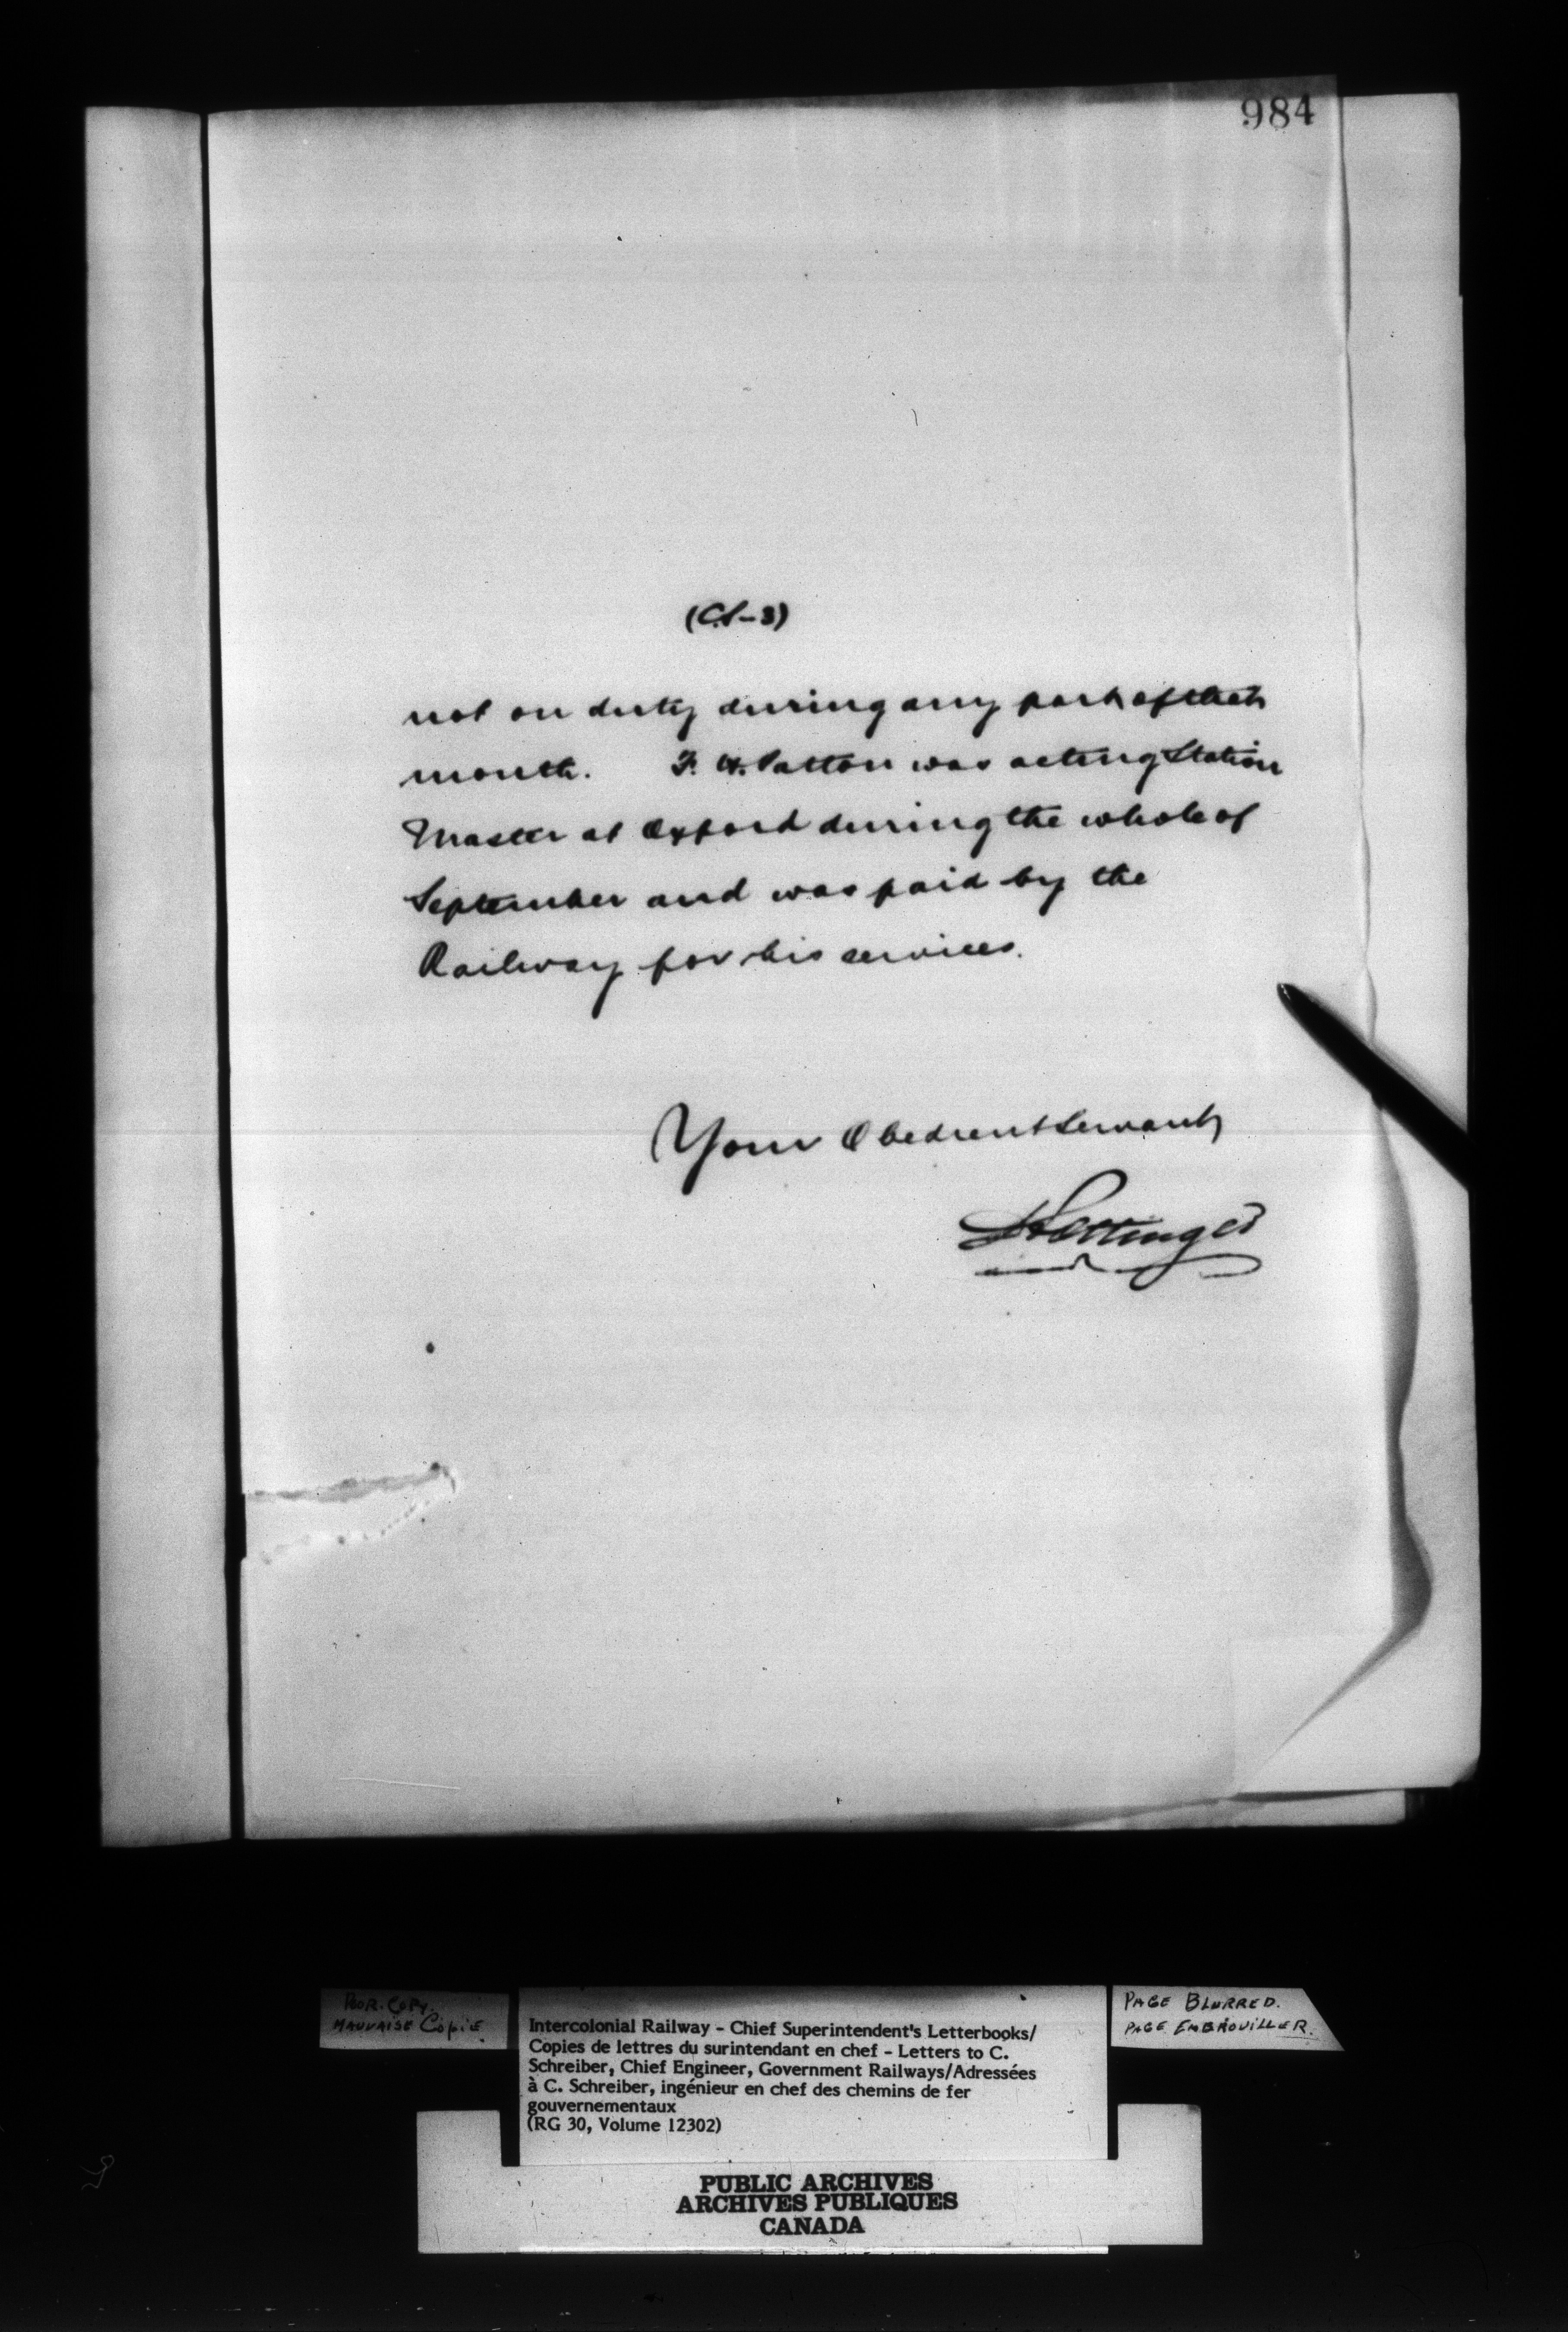 984
(C.S-3)
not on duty during any part of that
month. F. W. Patton was acting Station
Master at Oxford during the whole of
September and was paid by the
Railway for his services.
Your Obedient Servant
DPottinger
POOR. COPY.
MAUVAISE COPIE
Intercolonial Railway - Chief Superintendent's Letterbooks/
Copies de lettres du surintendant en chef - Letters to C.
Schreiber, Chief Engineer, Government Railways/Adressées
à C. Schreiber, ingénieur en chef des chemins de fer
gouvernementaux
(RG 30, Volume 12302)
PAGE BLURRED.
PAGE EMBROUILLER.
PUBLIC ARCHIVES
ARCHIVES PUBLIQUES
CANADA